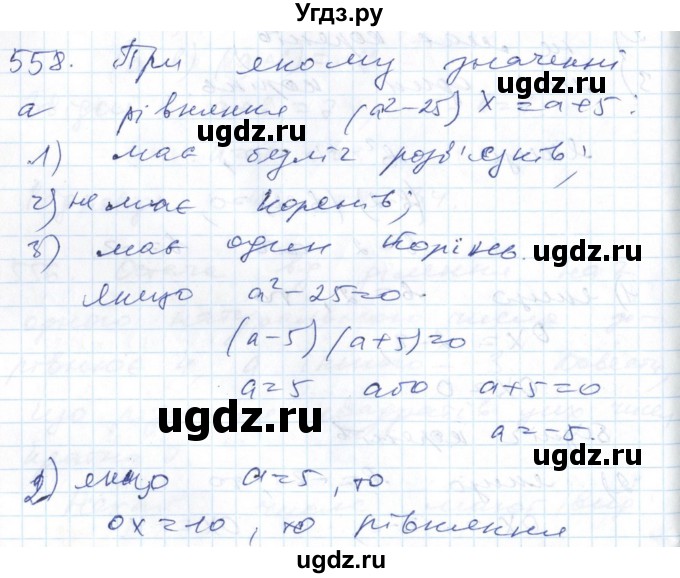 Угдз.ру
558. При якому значенні
а рівняння (а²-25) х = а+5:
ugdz.ru ugdz.ru
1) має безліч розв'язків;
2) немає коренів;
3) має один корінь.
ugdz.ru ugdz.ru
якщо а²-25=0.
(а-5)(а+5)=0
а=5 або а+5=0
ugdz.ru ugdz.ru
а=-5.
2) якщо а=5, то
0х=10, то рівняння
ugdz.ru